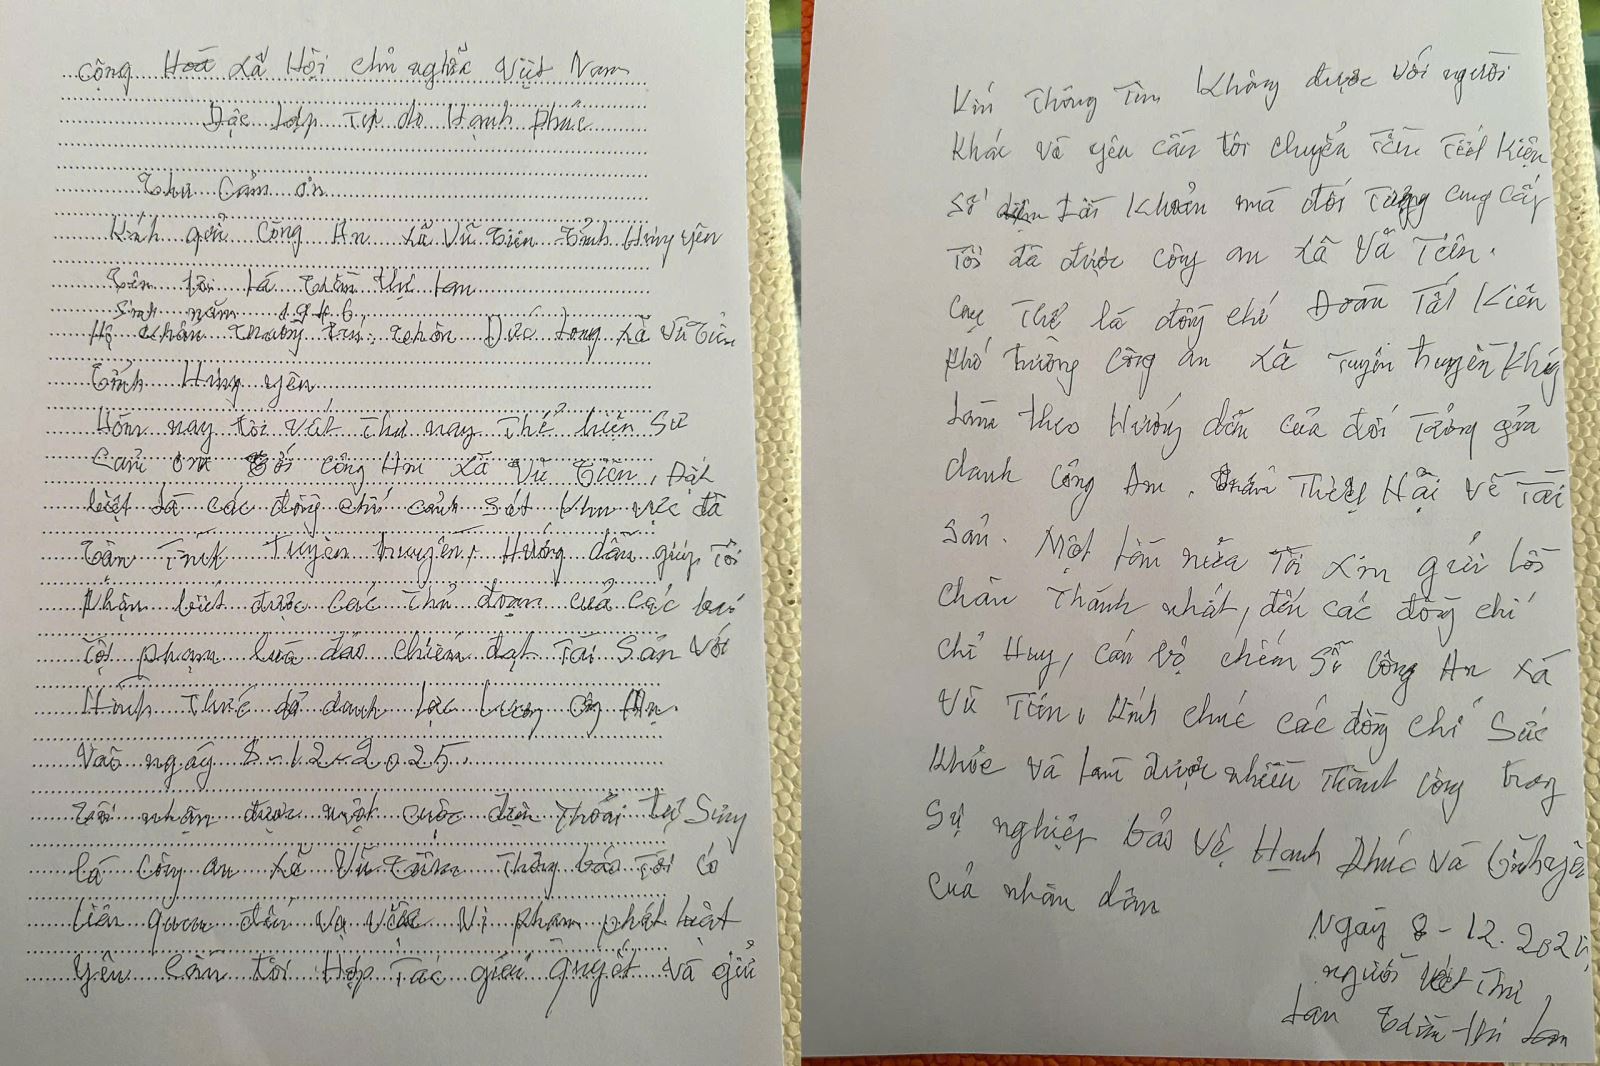 Cộng Hoà Xã Hội chủ nghĩa Việt Nam
Độc Lập Tự do Hạnh Phúc
Thư Cảm ơn
Kính gửi Công An xã Vũ Tiên Tỉnh Hưng yên
Tên tôi là Trần thị Lan
Sinh năm 1946
Hộ khẩu Thường trú: thôn Đức Long xã Vũ Tiên
Tỉnh Hưng yên
Hôm nay tôi viết Thư nay Thể hiện Sự
Cảm ơn tới công An xã Vũ Tiên, Đặc
biệt là các đồng chí cảnh sát khu vực đã
Tân Tình Tuyên truyền, Hướng dẫn giúp Tôi
Nhận biết được các Thủ đoạn của các loại
Tội phạm lừa đảo chiếm đạt Tài Sản Với
Hình Thức dả danh lực lượng công An.
Vào ngày 8-12-2025
Tôi nhận được một cuộc điện Thoại tự Sưng
là Công an xã Vũ Tiên Thông báo Tôi có
liên quan đến vụ việc Vi phạm phát luật
yêu cầu tôi Hợp Tác giải quyết và giữ
Kín Thông Tin Không được với người
Khác và yêu cầu tôi chuyển Tiền Tiết Kiện
Số Tài Khoản mà đối Tượng cung Cấp
Tôi đã được công an xã Vũ Tiên.
Cụ Thể là đồng chí Đoàn Tất Kiên
phó trưởng Công an xã Tuyên truyền Không
Làm theo Hướng dẫn của đối Tượng giả
danh công An. Tránh Thiệt Hại về Tài
Sản. Một Lần nữa Tôi xin gửi Lời
Chân Thành nhất, đến các đồng chí
chỉ Huy, cán bộ chiến Sỹ Công An xã
Vũ Tiên, Kính chúc các đồng chí Sức
Khỏe và Làm được nhiều Thành Công trong
Sự nghiệp bảo vệ Hạnh Phúc và bình yên
của nhân dân
Ngày 8-12.2025
người viết Thư
Lan Trần thị Lan